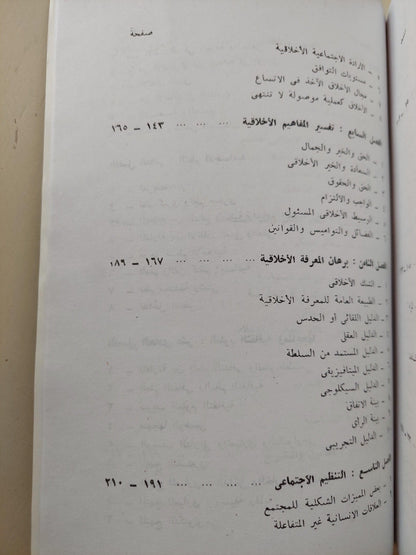 صفحة
١ – الارادة الاجتماعية الأخلاقية
٢ – مستويات التوافق
٣ – مجال الأخلاق الآخذ فى الاتساع
٤ – الأخلاق كعملية موصولة لا تنتهى
الفصل السابع : تفسير المفاهيم الأخلاقية ... ... ... ١٤٣ – ١٦٥
– الحق والخير والجمال
– السعادة والخير الأخلاقى
– الحق والحقوق
– الواجب والالتزام
– الوسيط الأخلاقى المسئول
– الفضائل والنواميس والقوانين
الفصل الثامن : برهان المعرفة الأخلاقية ... ... ... ١٦٧ – ١٨٩
– الشك الأخلاقى
– الطبيعة العامة للمعرفة الأخلاقية
– الدليل التلقائى أو الحدس
– الدليل العقل
– الدليل المستمد من السلطة
– الدليل الميتافيزيقى
– الدليل السيكلوجى
– بينة الاتفاق
– بينة الرأى
– الدليل التجريبى
الفصل التاسع : التنظيم الاجتماعى ... ... ... ... ١٩١ – ٢١٠
– بعض الميزات الشكلية للمجتمع
– العلاقات الانسانية غير المتفاعلة